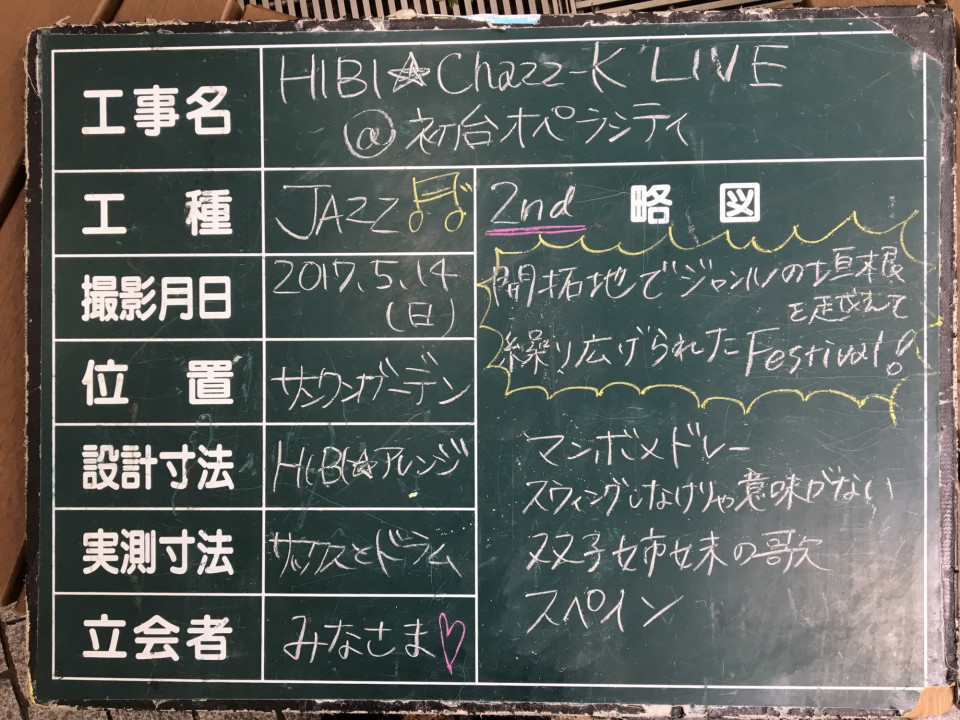 工事名
HIBI☆Chazz-K LIVE
@初台オペラシティ
工種
JAZZ♫
撮影月日
2017.5.14
(日)
位置
サンクンガーデン
設計寸法
HIBI☆アレンジ
実測寸法
サックスとドラム
立会者
みなさま♡
2nd 略図
開拓地でジャンルの垣根
を越えて
繰り広げられたFestival!
マンボメドレー
スウィングしなけりゃ意味がない
双子姉妹の歌
スペイン